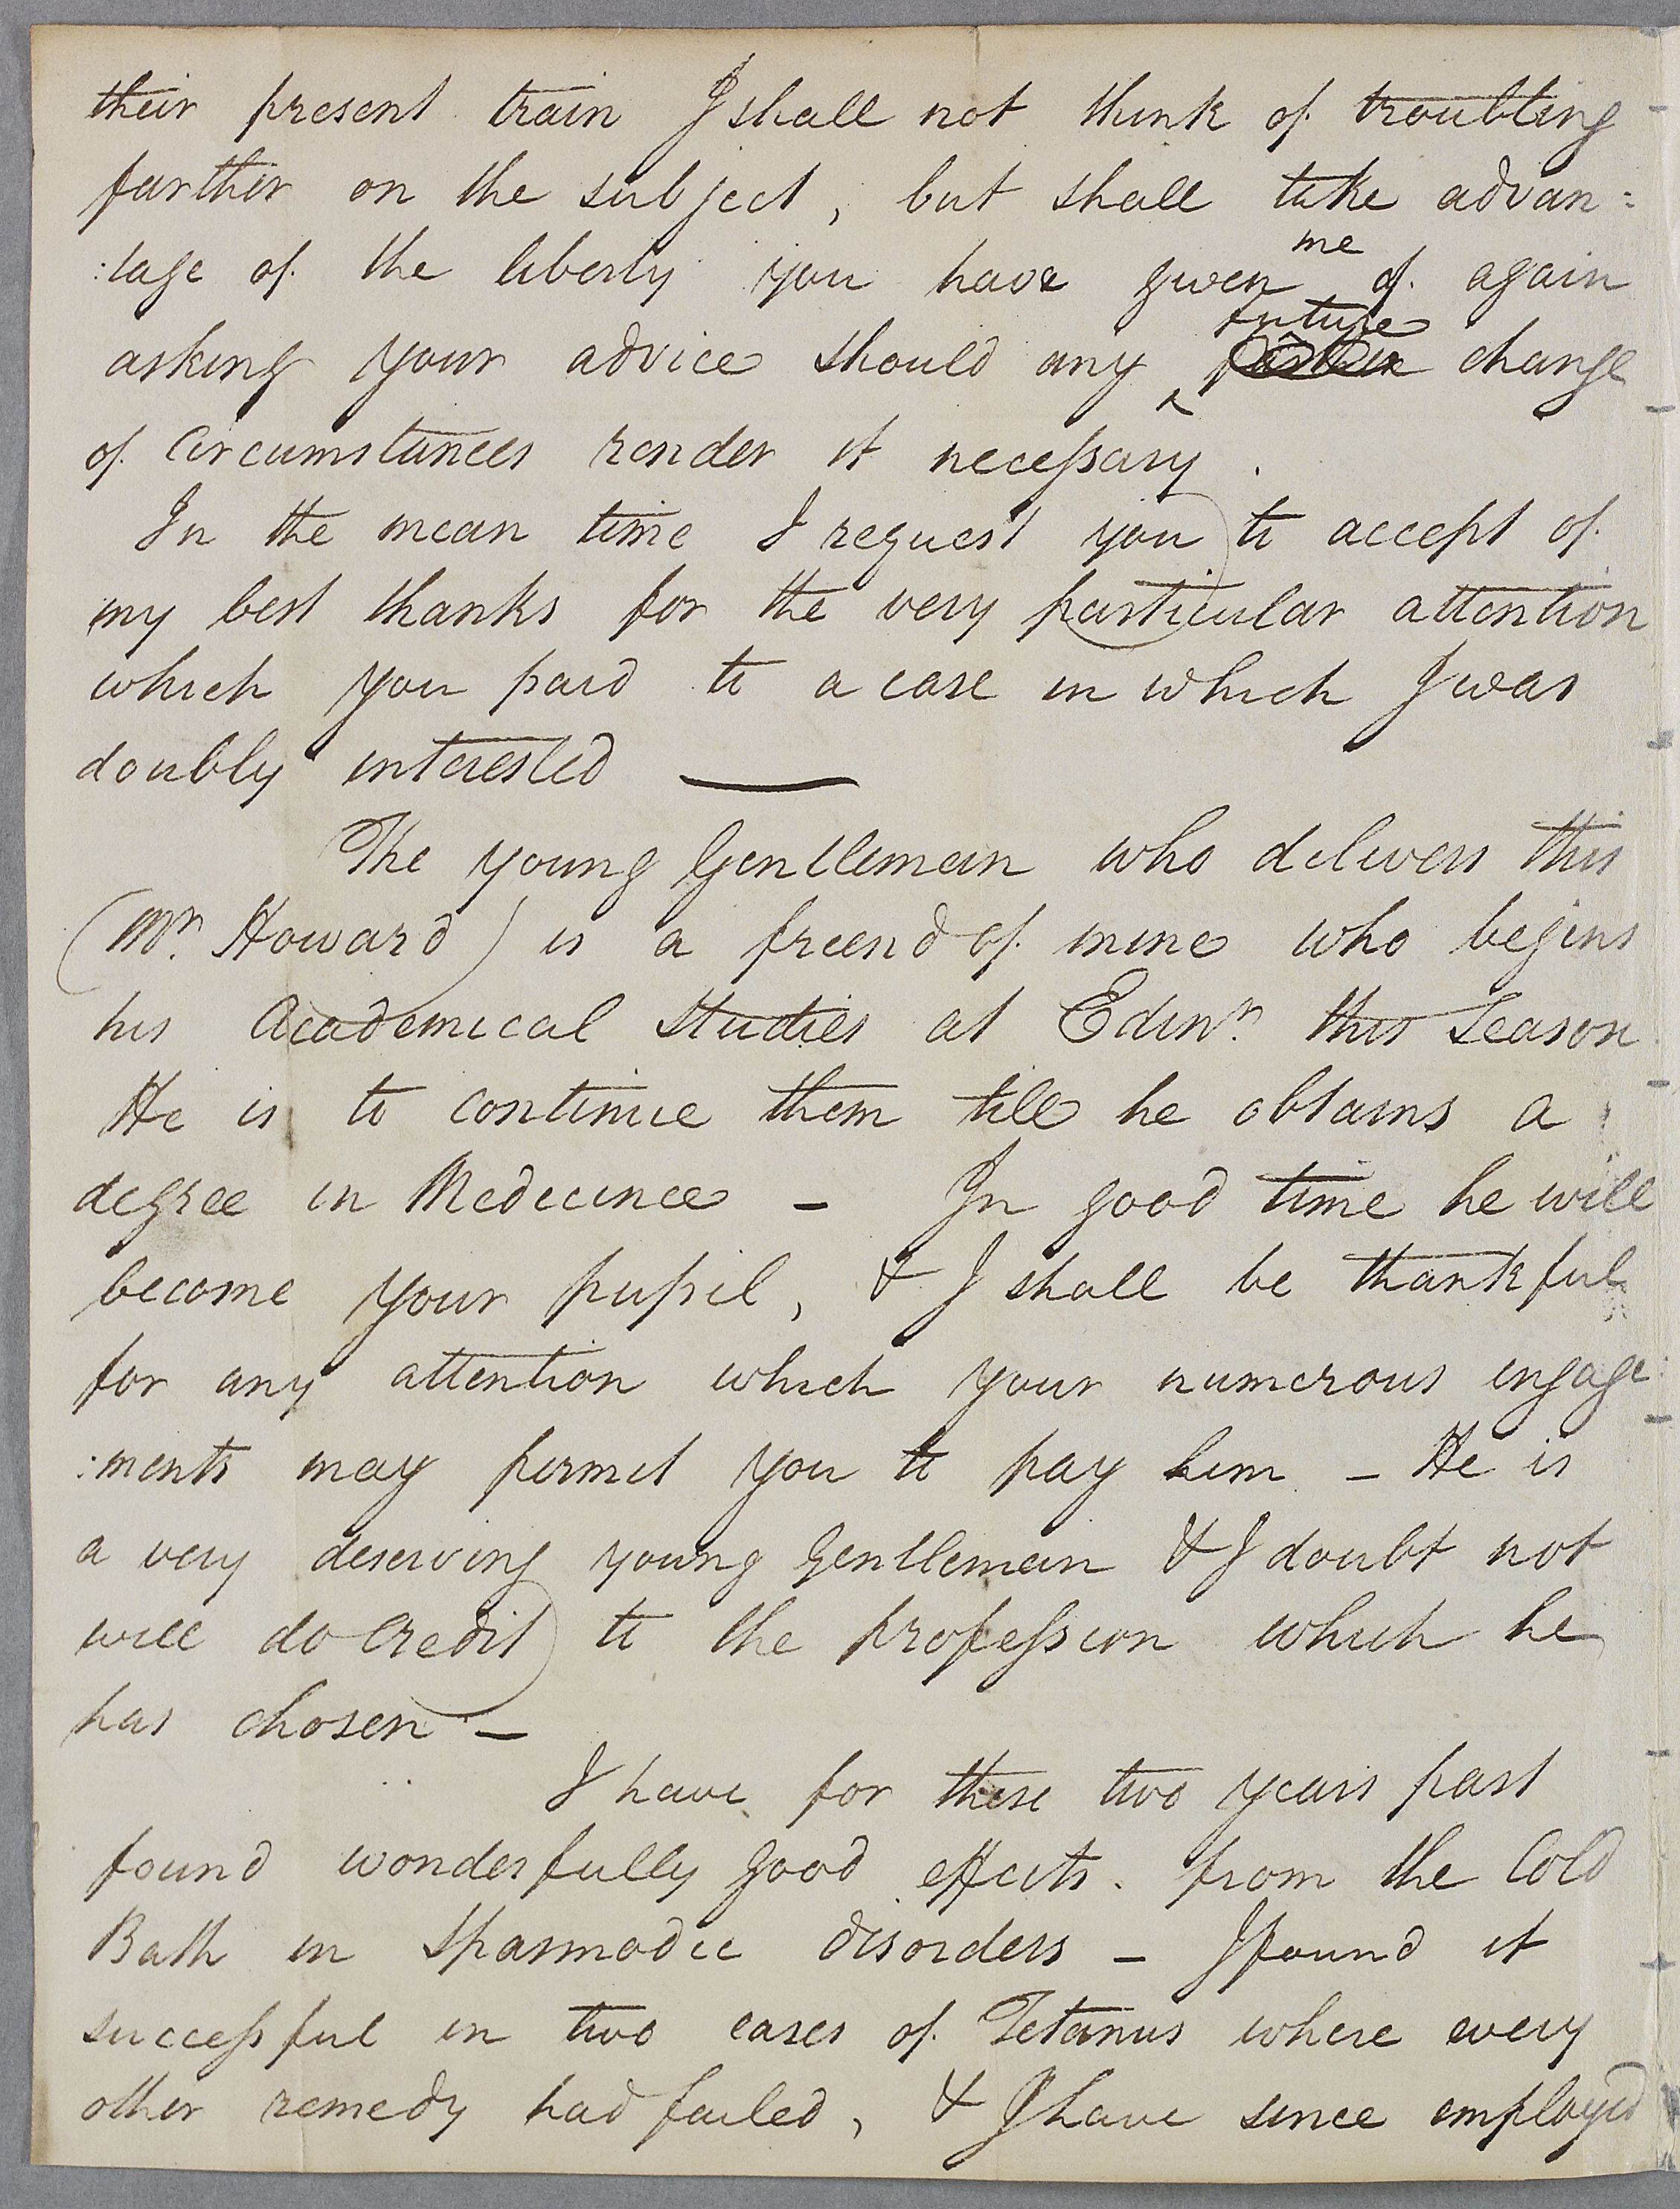 their present train I shall not think of troubling
farther on the subject, but shall take advan=
:tage of the liberty you have given me of again
asking your advice should any future change
of Circumstances render it necessary.
In the mean time I request you to accept of
my best thanks for the very particular attention
which you paid to a case in which I was
doubly interested —
The young Gentleman who delivers this
(Mr. Howard) is a freend of mine who begins
his Academical Studies at Edinr. this Season
He is to continue them till he obtains a
degree in Medecine - In good time he will
become your pupil, & I shall be thankful
for any attention which your numerous engage
:ments may permit you to pay him - He is
a very deserving young Gentleman & I doubt not
will do Credit to the profession which he
has chosen -
I have for these two years past
found wonderfully good effects from the Cold
Bath in Spasmodic disorders - I found it
successful in two cases of Tetanus where every
other remedy had failed, & I have since employed